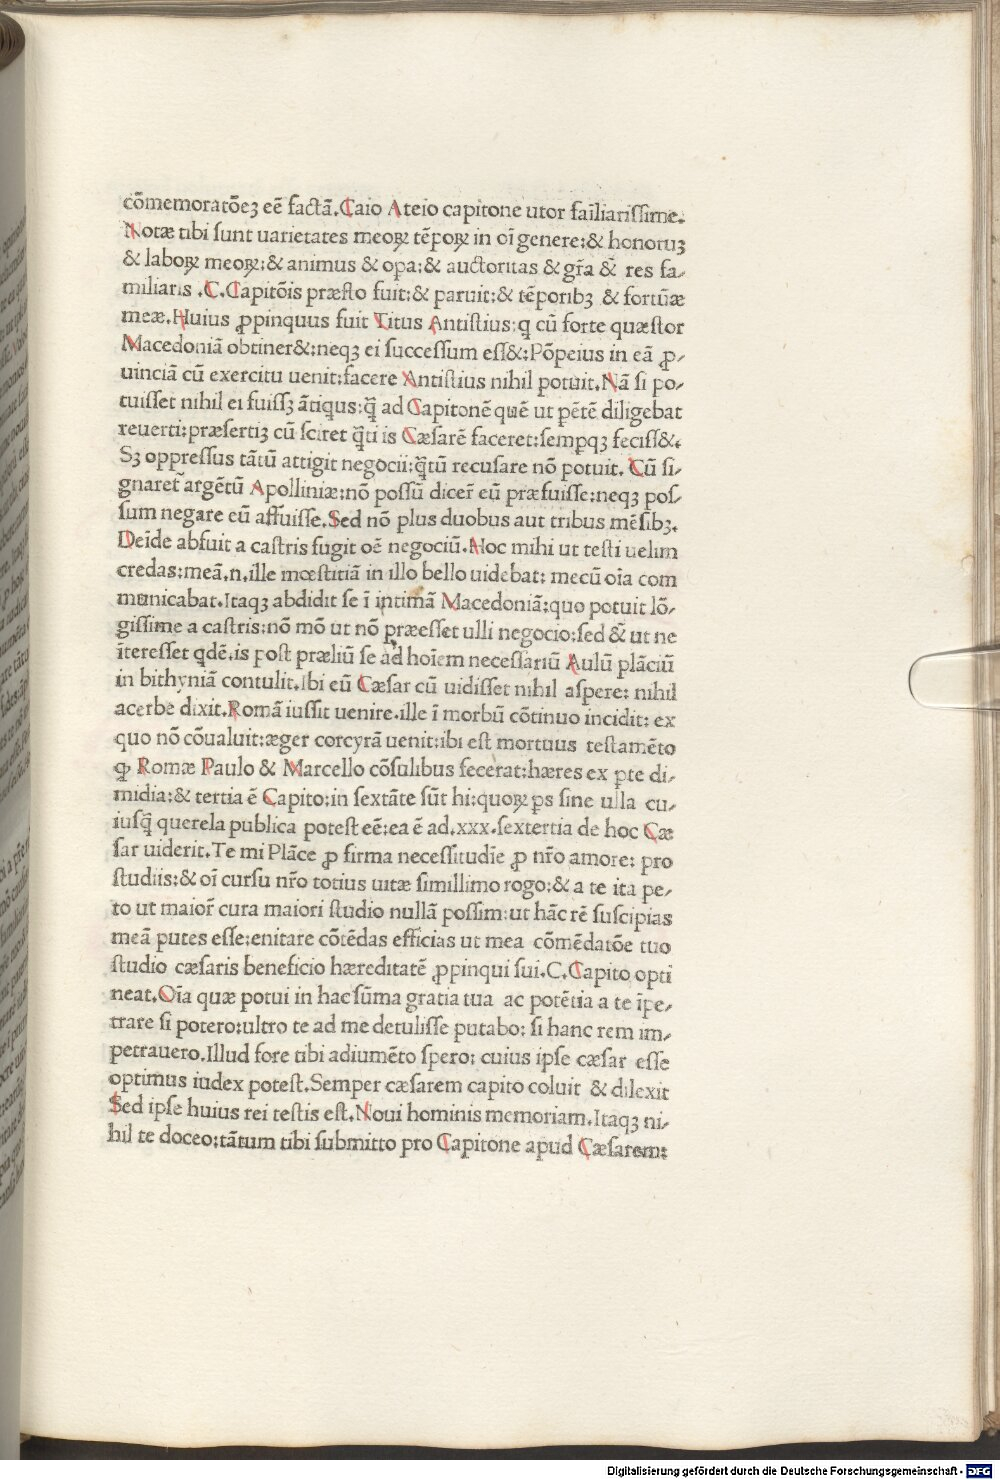 cōmemoratōeꝫ eē factā.Caio Ateio capitone utor faīliarissime.
Notæ tibi sunt uarietates meoꝝ tēpoꝝ in oī genere:& honoruꝫ
& laboꝝ meoꝝ:& animus & opa:& auctoritas & gr̄a & res fa-
miliaris .C.Capitōis præsto fuit:& paruit:& tēporibꝫ & fortūæ
meæ.Huius ꝓpinquus fuit Titus Antistius:q cū forte quæstor
Macedoniā obtiner&:neqꝫ ei successum ess&:Pōpeius in eā ꝓ-
uinciā cū exercitu uenit:facere Antistius nihil potuit.Nā si po-
tuisset nihil ei fuissꝫ ātiqus:q̄ ad Capitonē quē ut pētē diligebat
reuerti:præsertiꝫ cū sciret q̄ti is Cæsarē faceret:sempqꝫ feciss&.
Sꝫ oppressus tātū attigit negocii:q̄tū recusare nō potuit. Cū si-
gnaret̄ argētū Apolliniæ:nō possū dicer̄ eū præfuisse:neqꝫ pos-
sum negare eū affuisse.Sed nō plus duobus aut tribus mēsibꝫ.
Deīde abfuit a castris fugit oē negociū.Hoc mihi ut testi uelim
credas:meā.n.ille mœstitiā in illo bello uidebat: mecū oīa com
municabat.Itaqꝫ abdidit se ī intimā Macedoniā:quo potuit lō-
gissime a castris:nō mō ut nō præesset ulli negocio:sed & ut ne
īteresset qdē.is post præliū se ad hoīem necessariū Aulū plāciū
in bithyniā contulit.Ibi eū Cæsar cū uidisset nihil aspere: nihil
acerbe dixit.Romā iussit uenire.ille ī morbū cōtinuo incidit: ex
quo nō cōualuit:æger corcyrā uenit:ibi est mortuus testamēto
ꝙ Romæ Paulo & Marcello cōsulibus fecerat:hæres ex pte di-
midia:& tertia ē Capito:in sextāte sūt hi:quoꝝ ps sine ulla cu-
iusq̄ querela publica potest eē:ea ē ad.xxx.sextertia de hoc Cæ
sar uiderit.Te mi Plāce ꝓ firma necessitudīe ꝓ nr̄o amore: pro
studiis:& oī cursu nr̄o totius uitæ simillimo rogo:& a te ita pe-
to ut maior̄ cura maiori studio nullā possim:ut hāc rē suscipias
meā putes esse:enitare cōtēdas efficias ut mea cōmēdatōe tuo
studio cæsaris beneficio hæreditatē ꝓpinqui sui.C.Capito opti
neat.Oīa quæ potui in hac sūma gratia tua ac potētia a te īpe-
trare si potero:ultro te ad me detulisse putabo: si hanc rem im-
petrauero.Illud fore tibi adiumēto spero: cuius ipse cæsar esse
optimus iudex potest.Semper cæsarem capito coluit & dilexit
Sed ipse huius rei testis est.Noui hominis memoriam.Itaqꝫ ni-
hil te doceo:tātum tibi submitto pro Capitone apud Cæsarem:
Digitalisierung gefördert durch die Deutsche Forschungsgemeinschaft - DFG